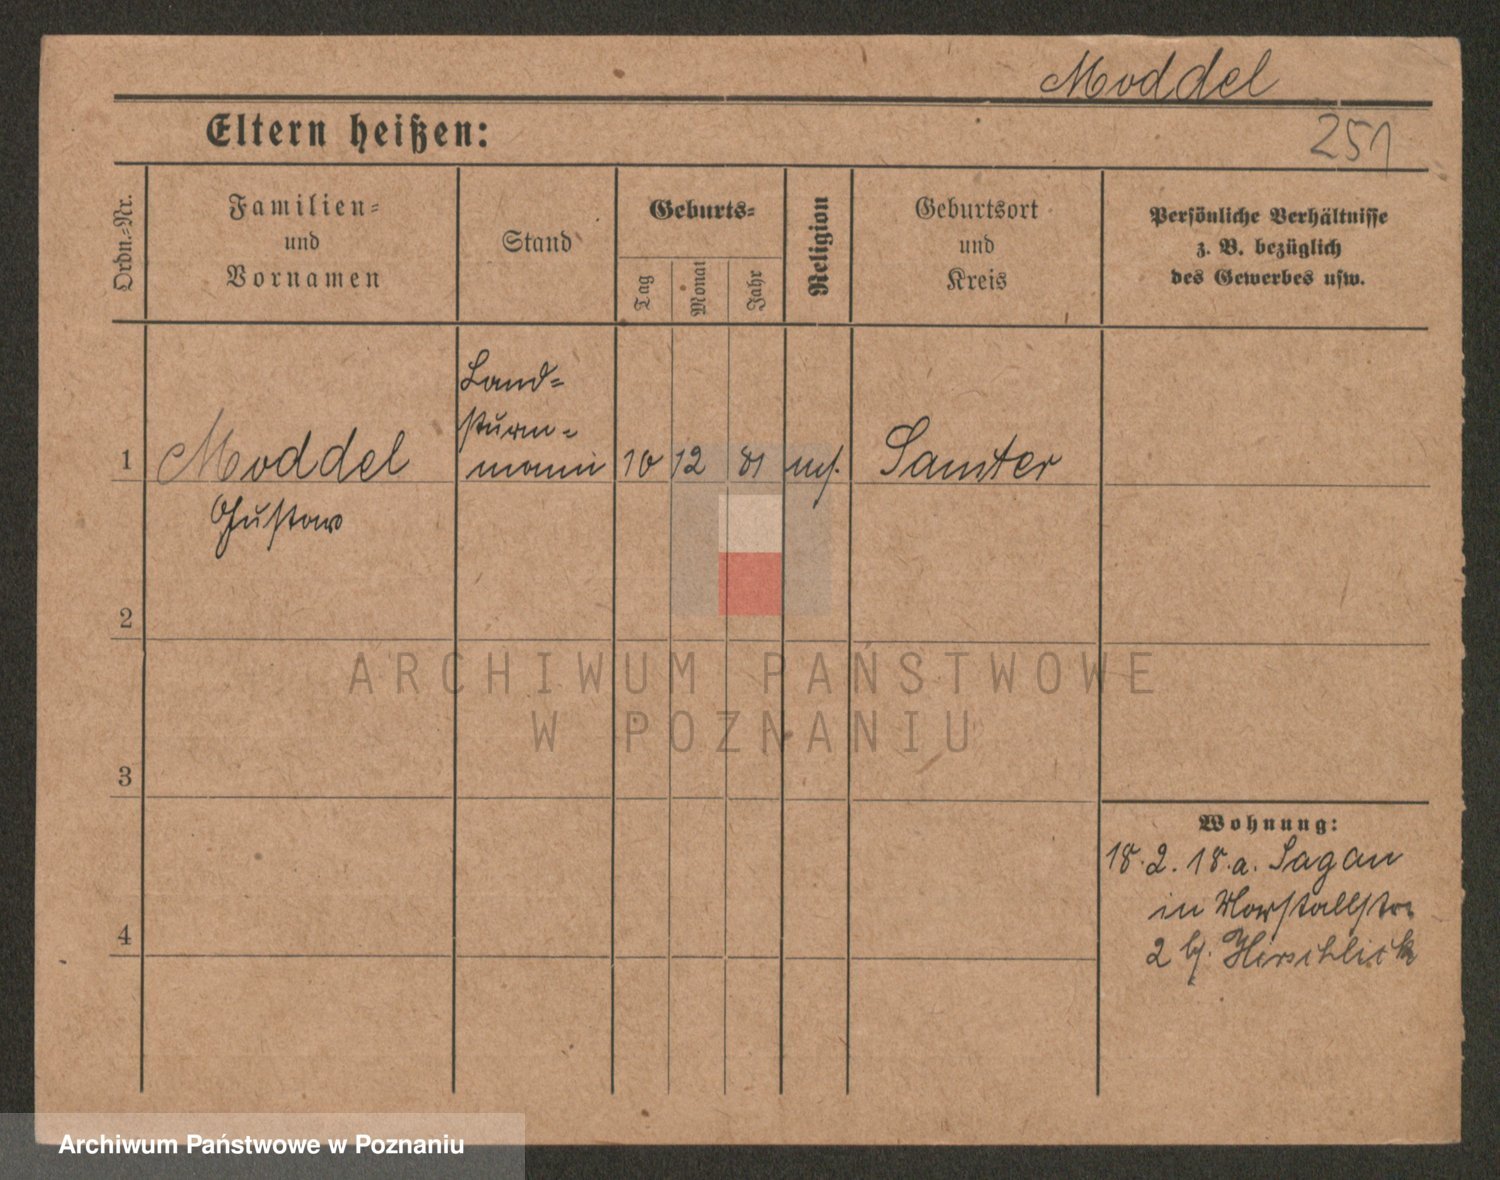 Moddel
Eltern heißen:
251
Ordn.-Nr.
Familien-
und
Vornamen
Stand
Geburts-
Tag
Monat
Jahr
Religion
Geburtsort
und
Kreis
Persönliche Verhältnisse
z. B. bezüglich
des Gewerbes usw.
Land-
sturm-
mann
1 Moddel 10 12 81 Samter
Gustav
2
3
4
Wohnung:
18. 2. 18. a. Sagan
in
2 b/. Hirschlick
ARCHIWUM PAŃSTWOWE
W POZNANIU
Archiwum Państwowe w Poznaniu